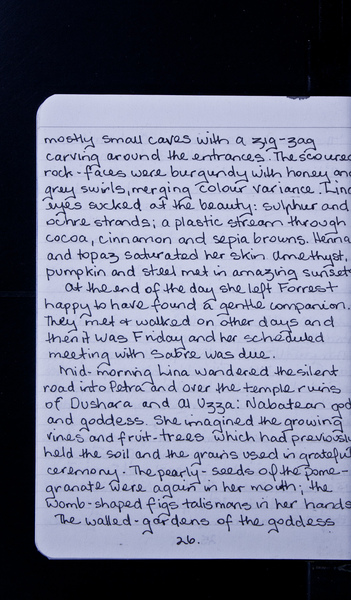 mostly small caves with a zig-zag
carving around the entrances. The scoured
rock-faces were burgundy with honey an
grey swirls, merging colour variance. Lina
eyes sucked at the beauty: sulphur and
ochre strands; a plastic stream through
cocoa, cinnamon and sepia browns. Henna
and topaz saturated her skin. Amethyst,
pumpkin and steel met in amazing sunset
At the end of the day she left Forrest
happy to have found a gentle companion.
They met & walked on other days and
then it was Friday and her scheduled
meeting with Sabre was due.
Mid-morning Lina wandered the silent
road into Petra and over the temple ruins
of Dushara and Al Uzza: Nabatean god
and goddess. She imagined the growing
vines and fruit-trees which had previously
held the soil and the grains used in grateful
ceremony. The pearly-seeds of the pome-
granate were again in her mouth; the
womb-shaped figs talismans in her hands
The walled-gardens of the goddess
26.